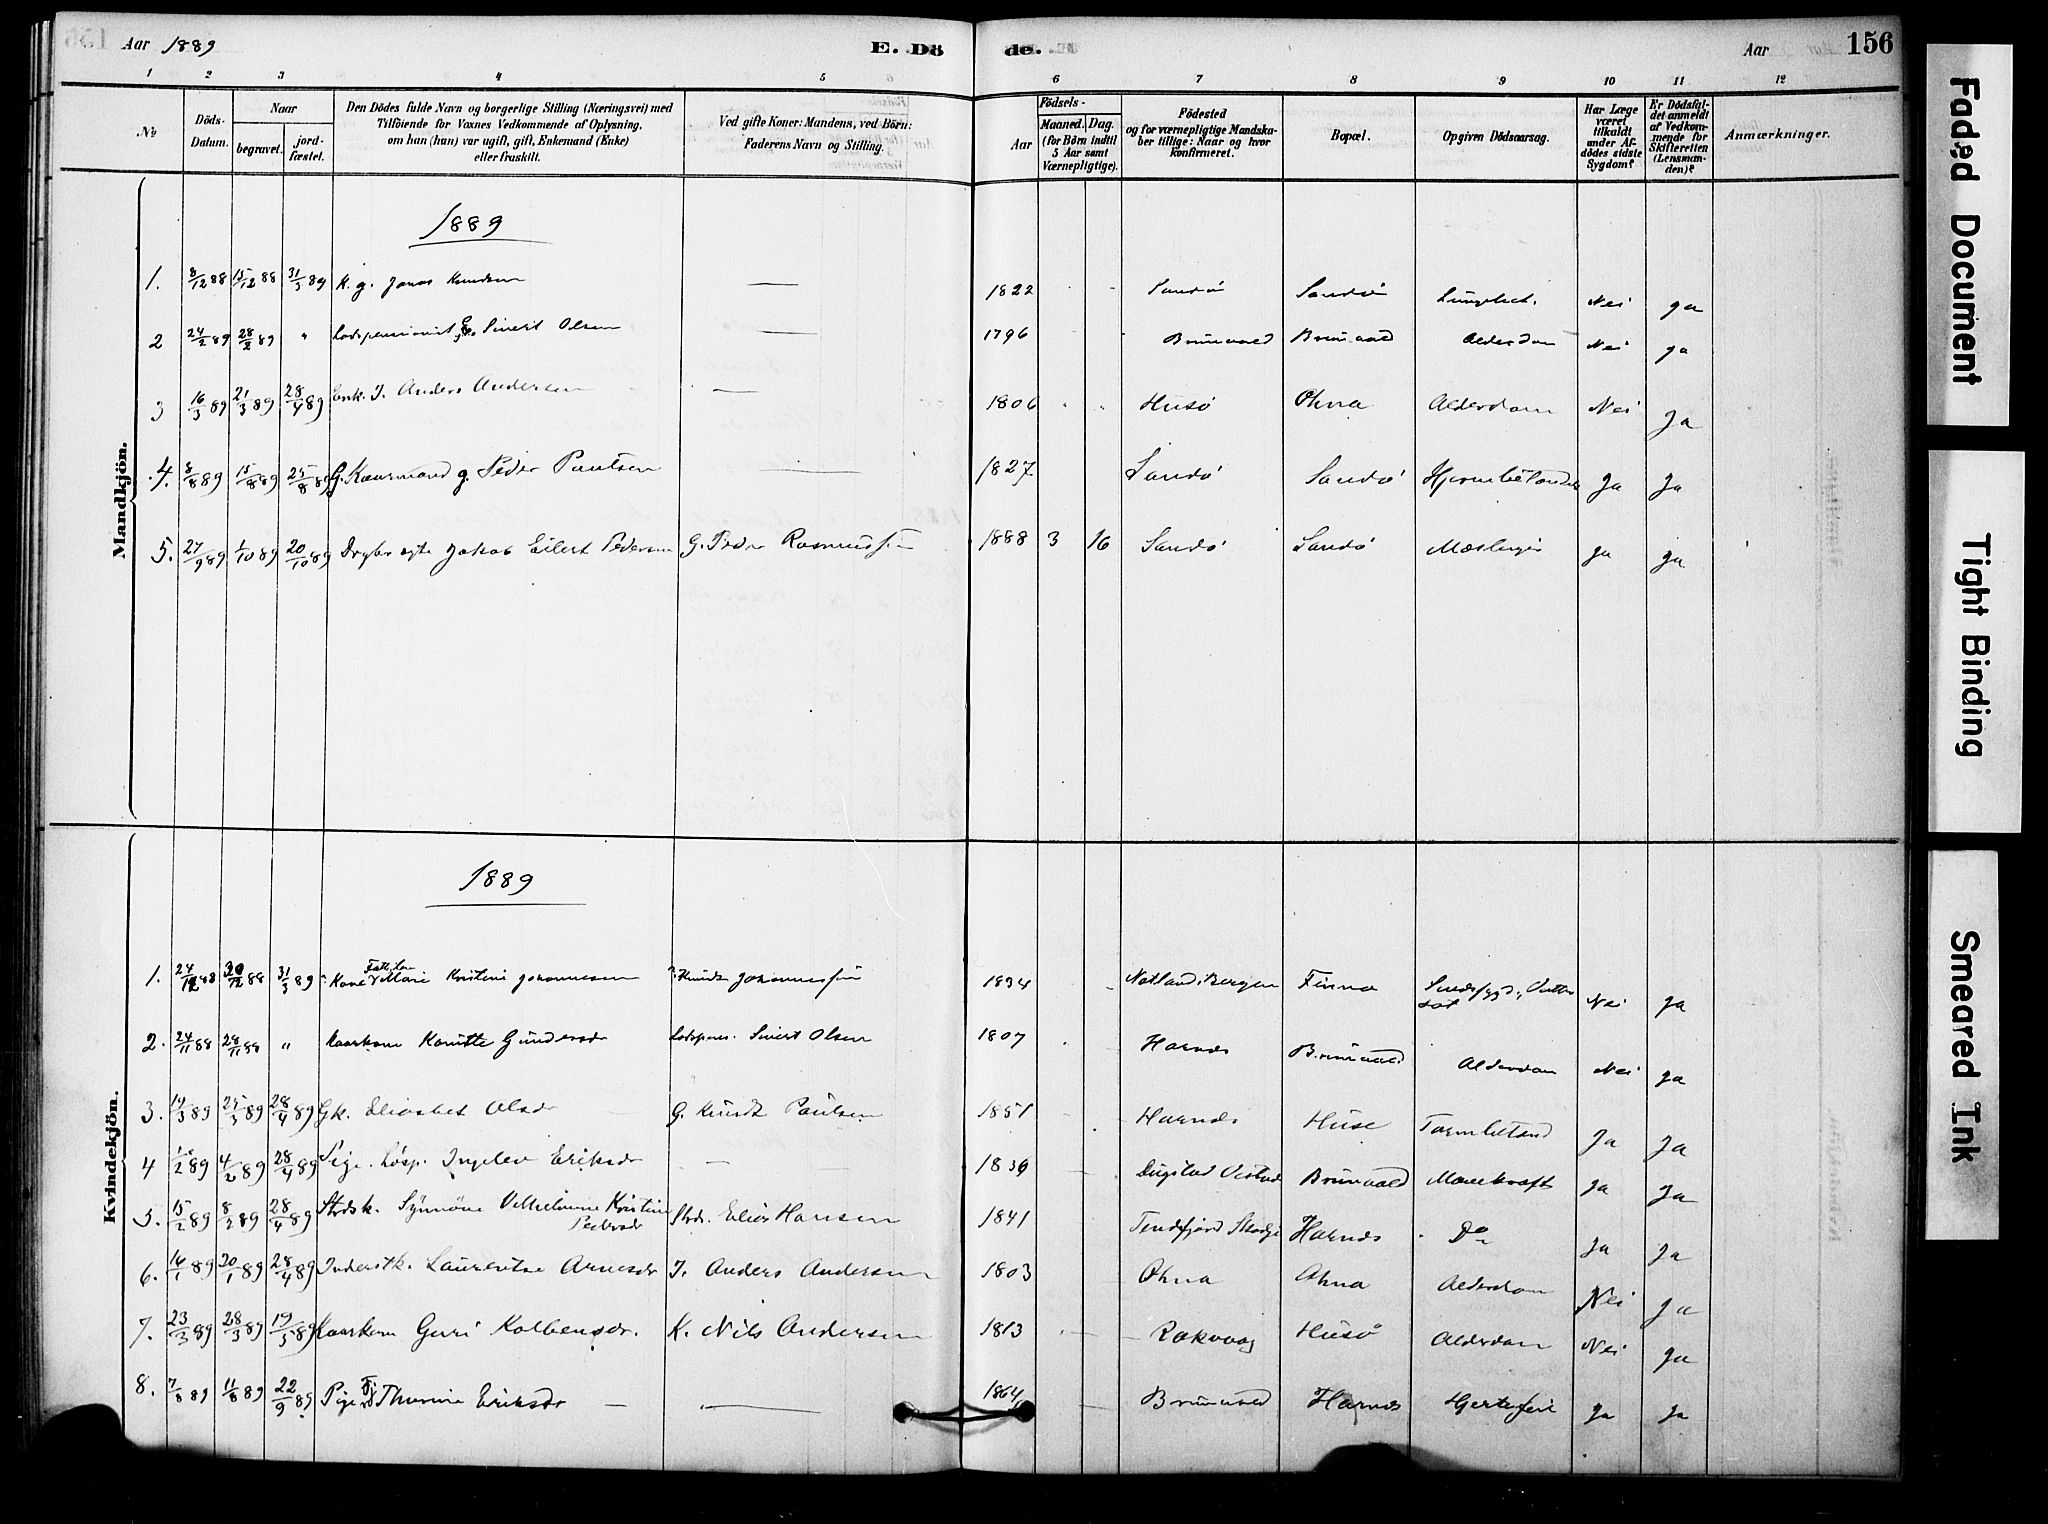 Aar 1889 E. Dö de. Aar 156
1 2 3 4 5 6 7 8 9 10 11 12
No Döds-Datum. Naar begravet. jord-fæstet. Den Dödes fulde Navn og borgerlige Stilling (Næringsvei) med Tilföiende for Voxnes Vedkommende af Oplysning. om han (hun) var ugift, gift, Enkemand (Enke) eller fraskilt. Ved gifte Koner: Mandens, ved Börn: Faderens Navn og Stilling. Aar Födsels- Maaned. Dag. (for Börn indtil 5 Aar samt Værnepligtige). Födested og for værnepligtige Mandska-ber tillige: Naar og hvor konfirmeret. Bopæl. Opgiven Dödsaarsag. Har Læge været tilkaldt under Af-dödes sidste Sygdom? Er Dödsfal-det anmeldt af Vedkom-mende for Skifteretten (Lensman-den)? Anmærkninger.
Mandkjön.
1889
1. 8/12 88 15/12 88 31/3 89 K. g. Jonas Knudsen — 1822 Sandö Sandö Nei Ja
2 24/2 89 28/2 89 " Lodspensionist Sivert Olsen — 1796 Brunvold Brunvold Alderdom Nei Ja
3 16/3 89 21/3 89 28/4 89 Enk. I. Anders Andersen — 1806 Husö Ohna Alderdom Nei Ja
4. 8/8 89 15/8 89 25/8 89 G. Kaarmand g. Peder Paulsen — 1827 Sandö Sandö Ja Ja
5. 27/9 89 1/10 89 20/10 89 Drgbr ægte Jakob Eilert Pedersen G. Peder Rasmussen 1888 3 16 Sandö Sandö Mæslinger Ja Ja
Kvindekjön.
1889
1. 24/12 88 30/12 88 31/3 89 Kone Marie Kristine Johannesen Knudt Johannessen 1834 Natland i Bergen Finnø Nei Ja
2. 24/11 88 28/11 88 " Kaarkone Kanutte Gundersdr Lodspens. Sivert Olsen 1807 Harnes Brunvold Alderdom Nei Ja
3. 19/3 89 25/3 89 28/4 89 Gk. Eliasbet Olsdr G. Knudt Paulsen 1851 Harnes Huse Ja Ja
4 1/2 89 4/2 89 28/4 89 Pige. Lösp. Ingelev Eriksdr — 1836 Brunvold Mavekræft Ja Ja
5. 15/2 89 8/2 89 28/4 89 Strdsk. Synnöve Vilhelmine Kristine
Pedersdr Strds. Elias Hansen 1841 Tennfjord Skodje Harnes Do Ja Ja
6. 16/1 89 20/1 89 28/4 89 Inderstk. Laurentse Arnesdr I. Anders Andersen 1803 Ohna Ohna Alderdom Nei Ja
7. 23/3 89 28/3 89 19/5 89 Kaarkone Guri Kolbensdr. K. Nils Andersen 1813 Rakvaag Husö Alderdom Nei Ja
8. 7/8 89 11/8 89 22/9 89 Pige Thurine Eriksdr — 1864 Brunvold Harnes Hjertefeil Ja Ja
Faded Document
Tight Binding
Smeared Ink